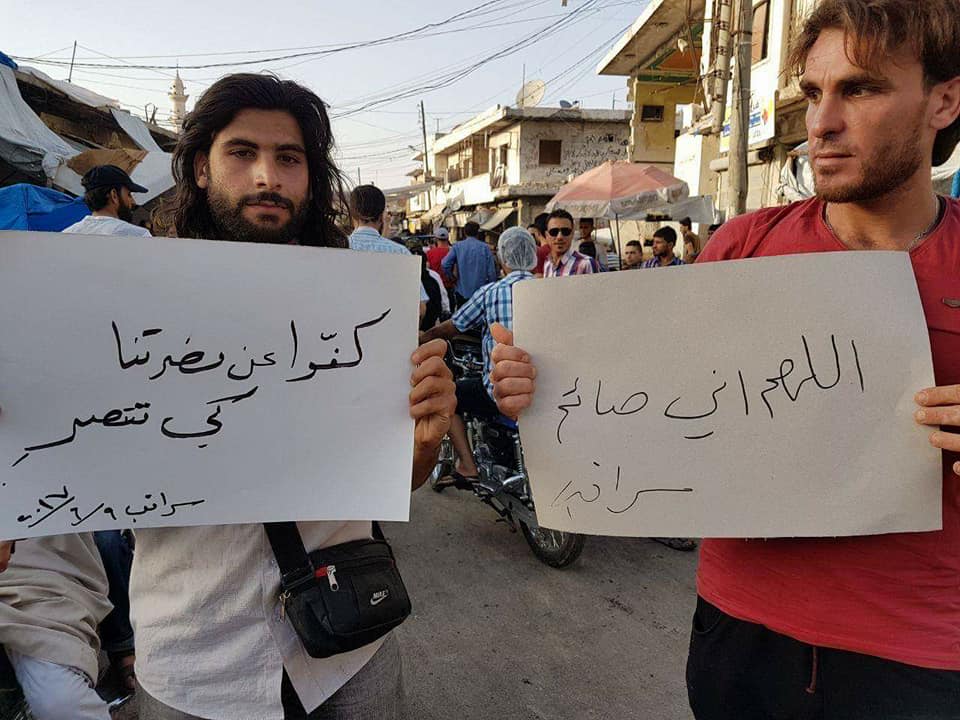 كفّوا عن نصرتنا
كي ننتصر
سراقب ٩/٦/٢٠١٧
اللهم اني صائم
سراقب
NIKE